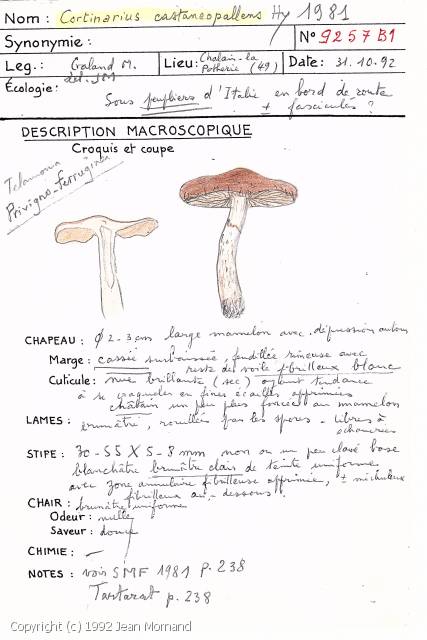 Nom : Cortinarius castaneopallens Hy 1981
Synonymie :
N° 9257 B1
Leg. : Graland M.
det. JM
Lieu : Chalain-la
Potherie (49)
Date : 31.10.92
Écologie :
Sous peupliers d'Italie en bord de route
± fasciculés ?
DESCRIPTION MACROSCOPIQUE
Croquis et coupe
Telamonia
Privigno-Ferruginea
CHAPEAU : Ø 2-3 cm large mamelon avec dépression autour
Marge : cassée surbaissée, fendillée rimeuse avec
reste du voile fibrilleux blanc
Cuticule : nue brillante (sec) ayant tendance
à se craqueler en fines écailles apprimées
châtain un peu plus foncée au mamelon
LAMES : brunâtre, rouillées par les spores - libres à
échancrées
STIPE : 30-55 X 5-8 mm, non ou un peu clavé base
blanchâtre brunâtre clair de teinte uniforme
avec zone annulaire fibrilleuse apprimée, ±
fibrilleux au-dessous.
CHAIR : brunâtre uniforme
Odeur : nulle
Saveur : douce
CHIMIE : —
NOTES : voir SMF 1981 P. 238
p. 238
Copyright (c) 1992 Jean Mornand